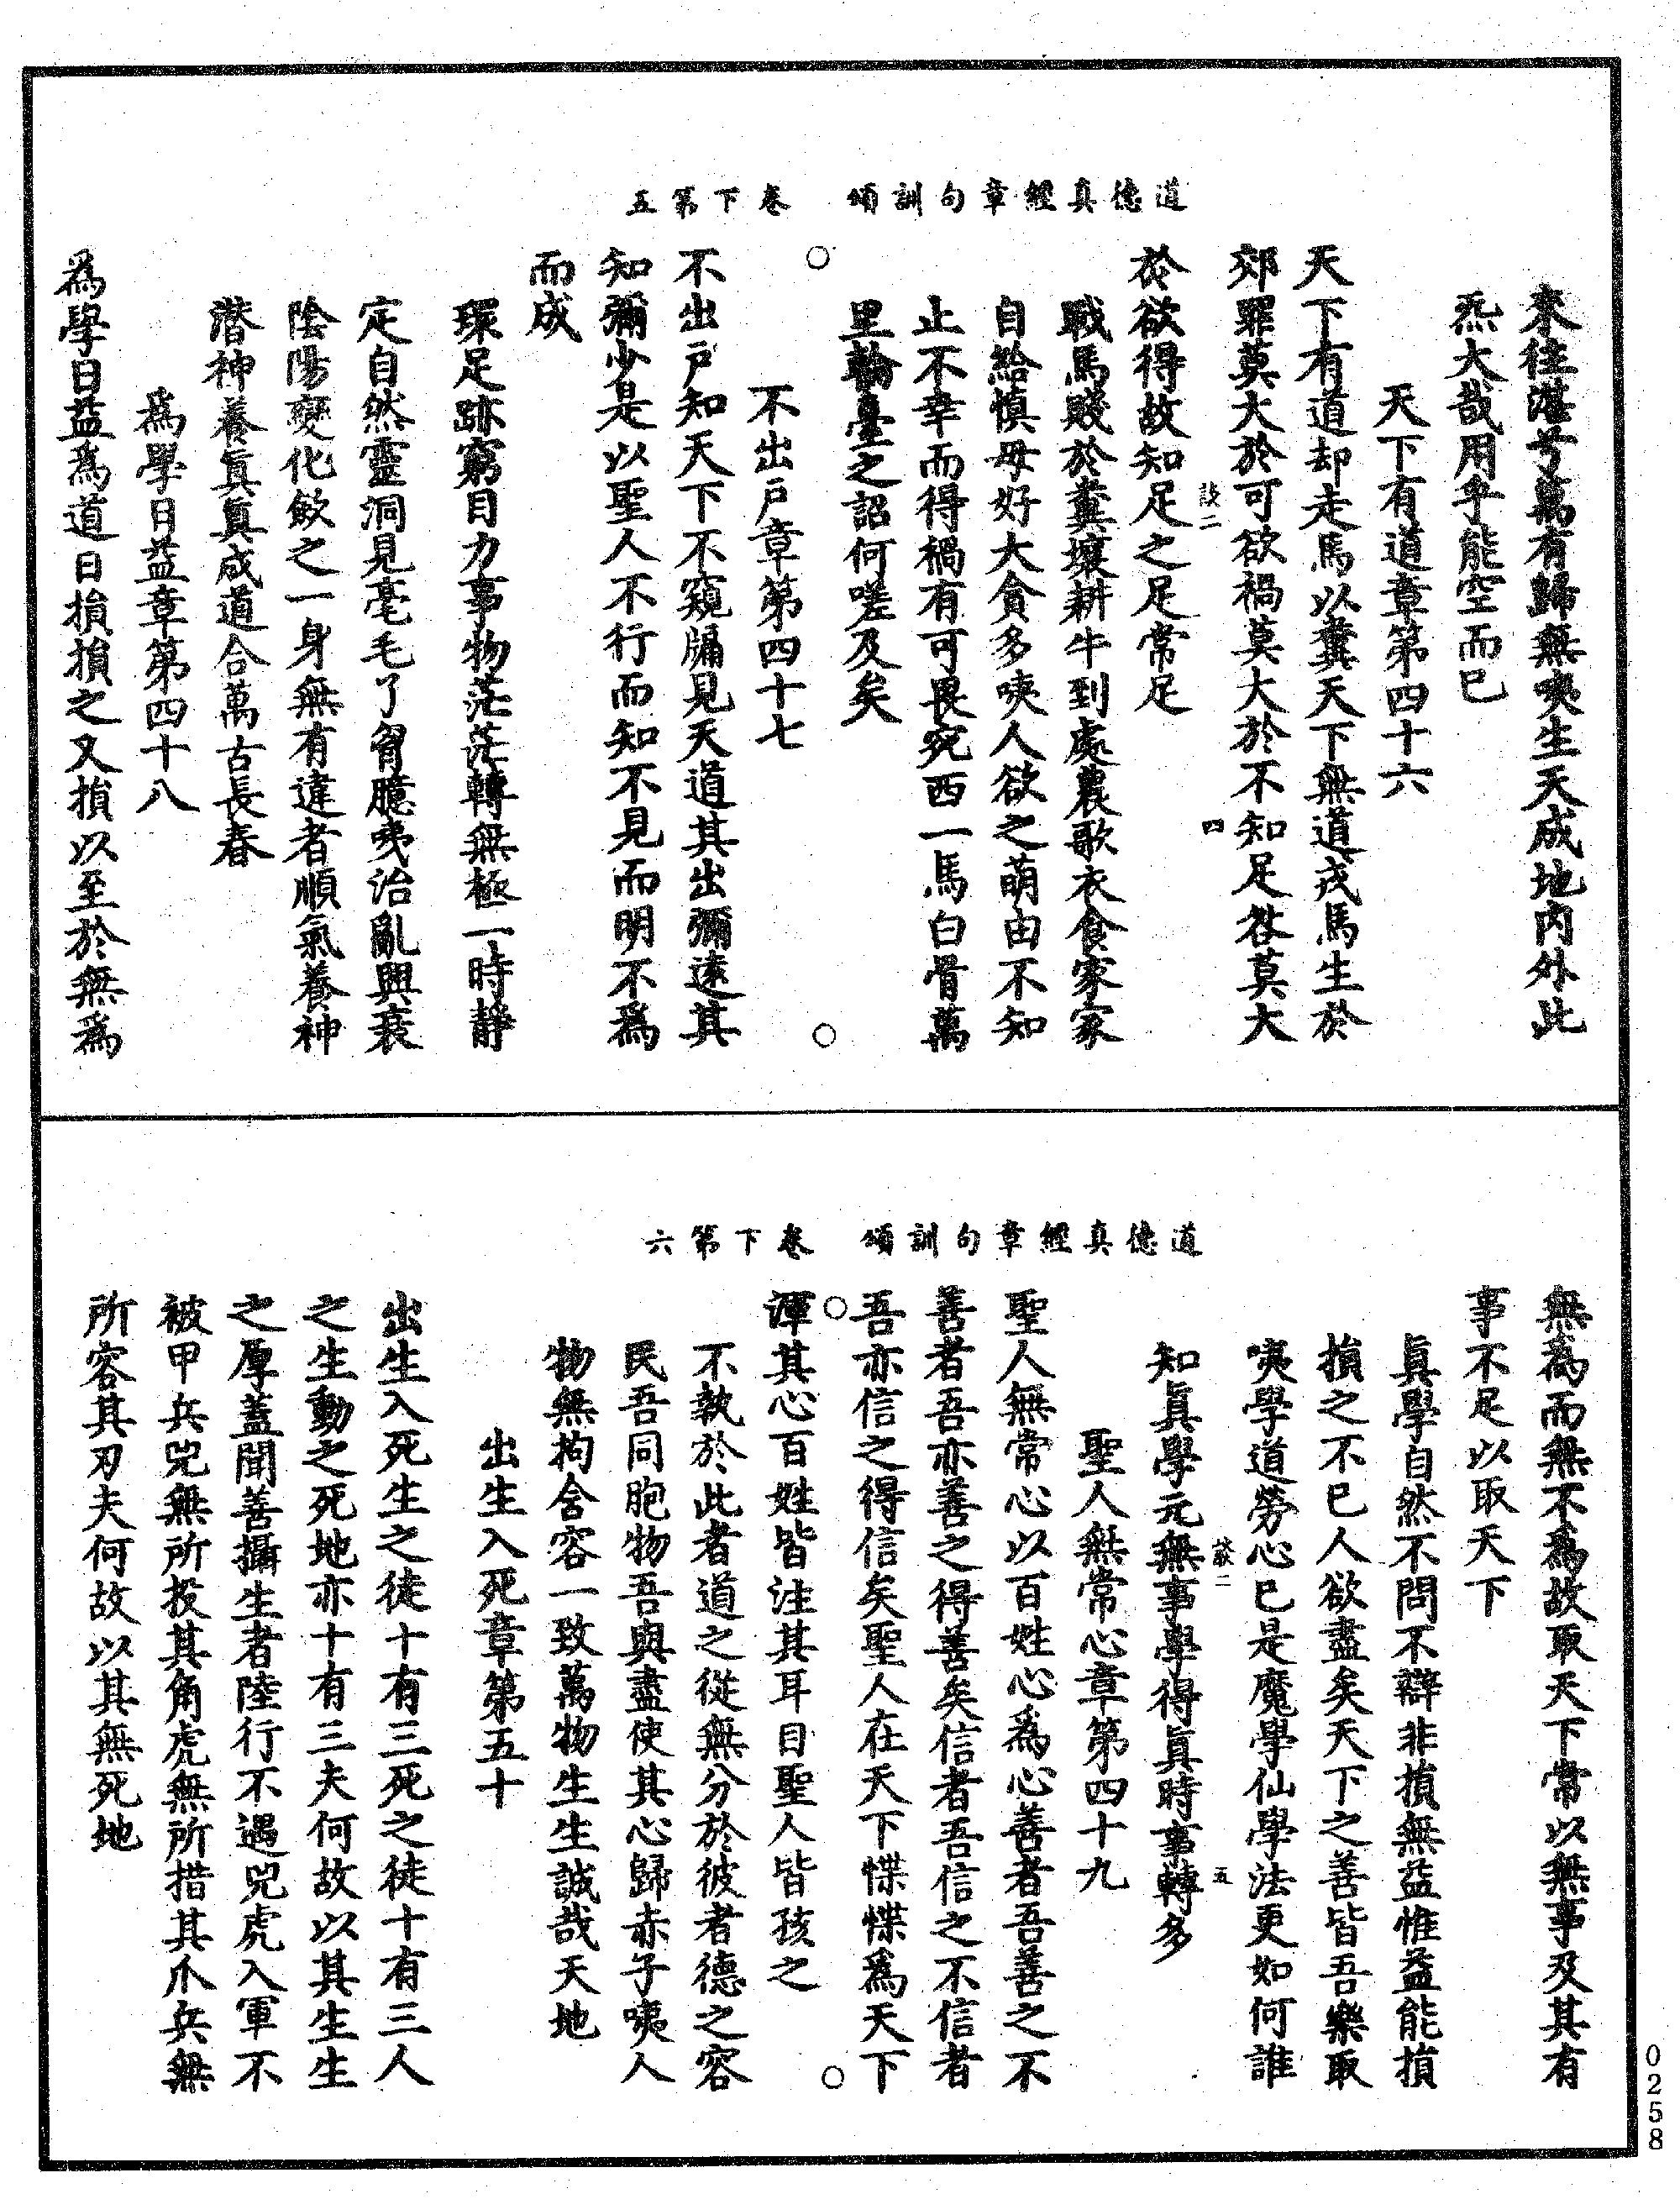 道德真經章句訓頌　卷下第五
來往湛兮萬有歸無噗生天成地內外此
炁大哉用乎能空而已
天下有道章第四十六
天下有道却走馬以糞天下無道戎馬生於
郊罪莫大於可欲禍莫大於不知足咎莫大
談二
四
於欲得故知足之足常足
戰馬賤於糞壤耕牛到處農歌衣食家家
自給慎毋好大貪多咦人欲之萌由不知
止不幸而得禍有可畏宛西一馬白骨萬
里輪臺之詔何嗟及矣
不出戶章第四十七
不出戶知天下不窺牖見天道其出彌遠其
知彌少是以聖人不行而知不見而明不爲
而成
環足跡窮目力事物茫茫轉無極一時靜
定自然靈洞見毫毛了胷臆咦治亂興衰
陰陽變化斂之一身無有違者順氣養神
潜神養眞眞成道合萬古長春
爲學日益章第四十八
爲學日益爲道日損損之又損以至於無爲
道德真經章句訓頌　卷下第六
無爲而無不爲故取天下常以無事及其有
事不足以取天下
眞學自然不問不辯非損無益惟益能損
損之不已人欲盡矣天下之善皆吾樂取
咦學道勞心已是魔學仙學法更如何誰
談二
五
知眞學元無事學得眞時事轉多
聖人無常心章第四十九
聖人無常心以百姓心爲心善者吾善之不
善者吾亦善之得善矣信者吾信之不信者
吾亦信之得信矣聖人在天下惵惵爲天下
渾其心百姓皆注其耳目聖人皆孩之
不執於此者道之從無分於彼者德之容
民吾同胞物吾與盡使其心歸赤子咦人
物無拘含容一致萬物生生誠哉天地
出生入死章第五十
出生入死生之徒十有三死之徒十有三人
之生動之死地亦十有三夫何故以其生生
之厚蓋聞善攝生者陸行不遇兕虎入軍不
被甲兵兕無所投其角虎無所措其爪兵無
所容其刃夫何故以其無死地
0258